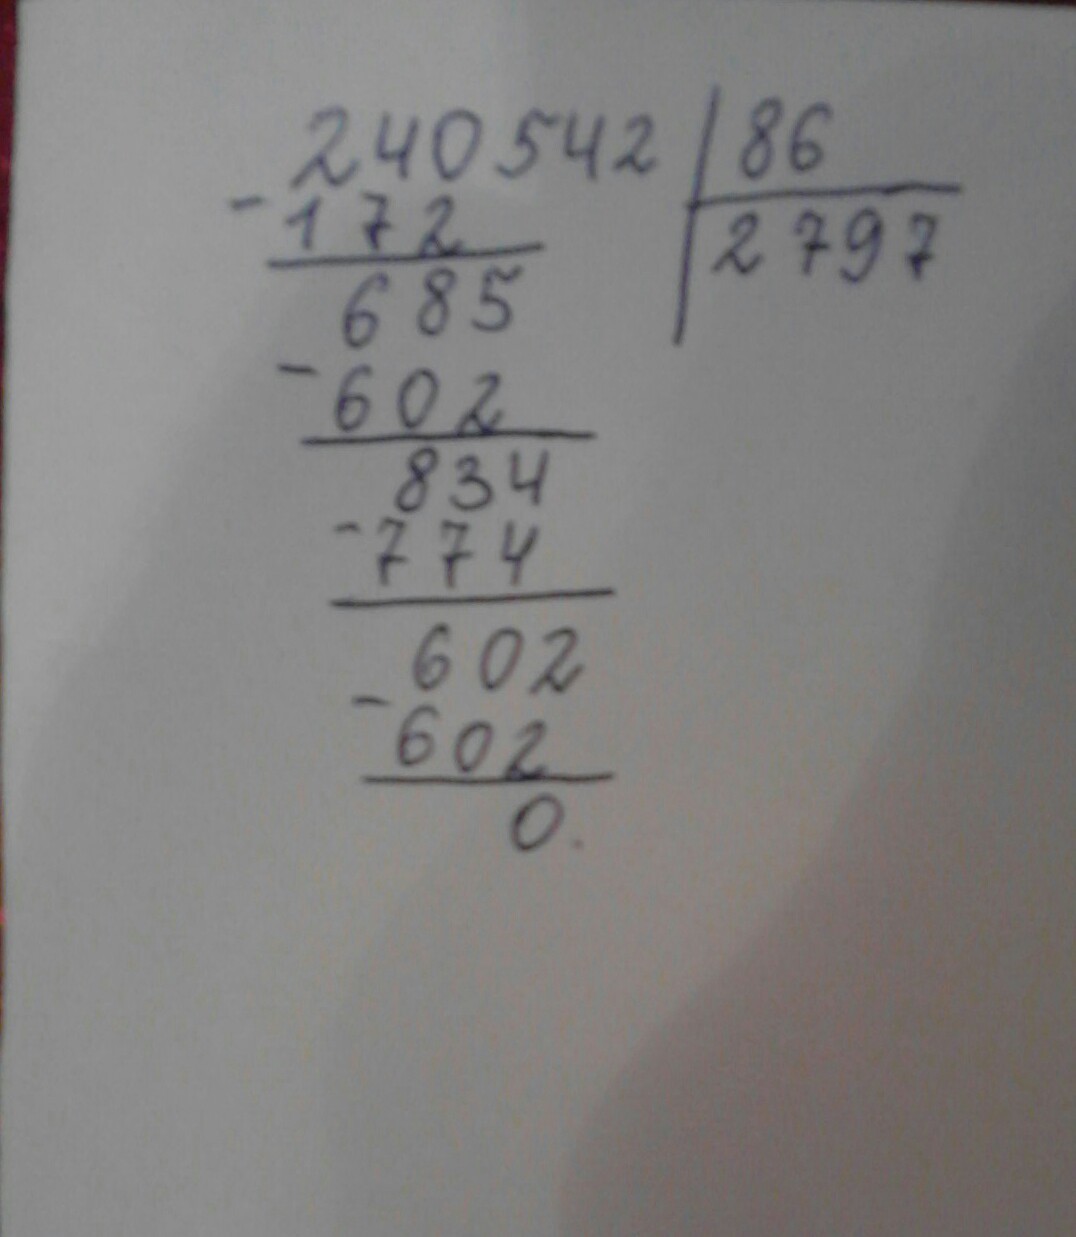 240542 86
- 172 2797
685
- 602
834
- 774
602
- 602
0.